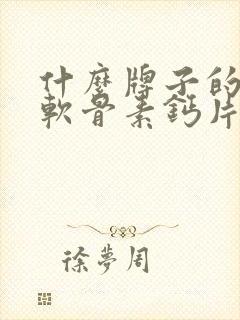 什麼牌子的
軟骨素鈣片
徐夢周